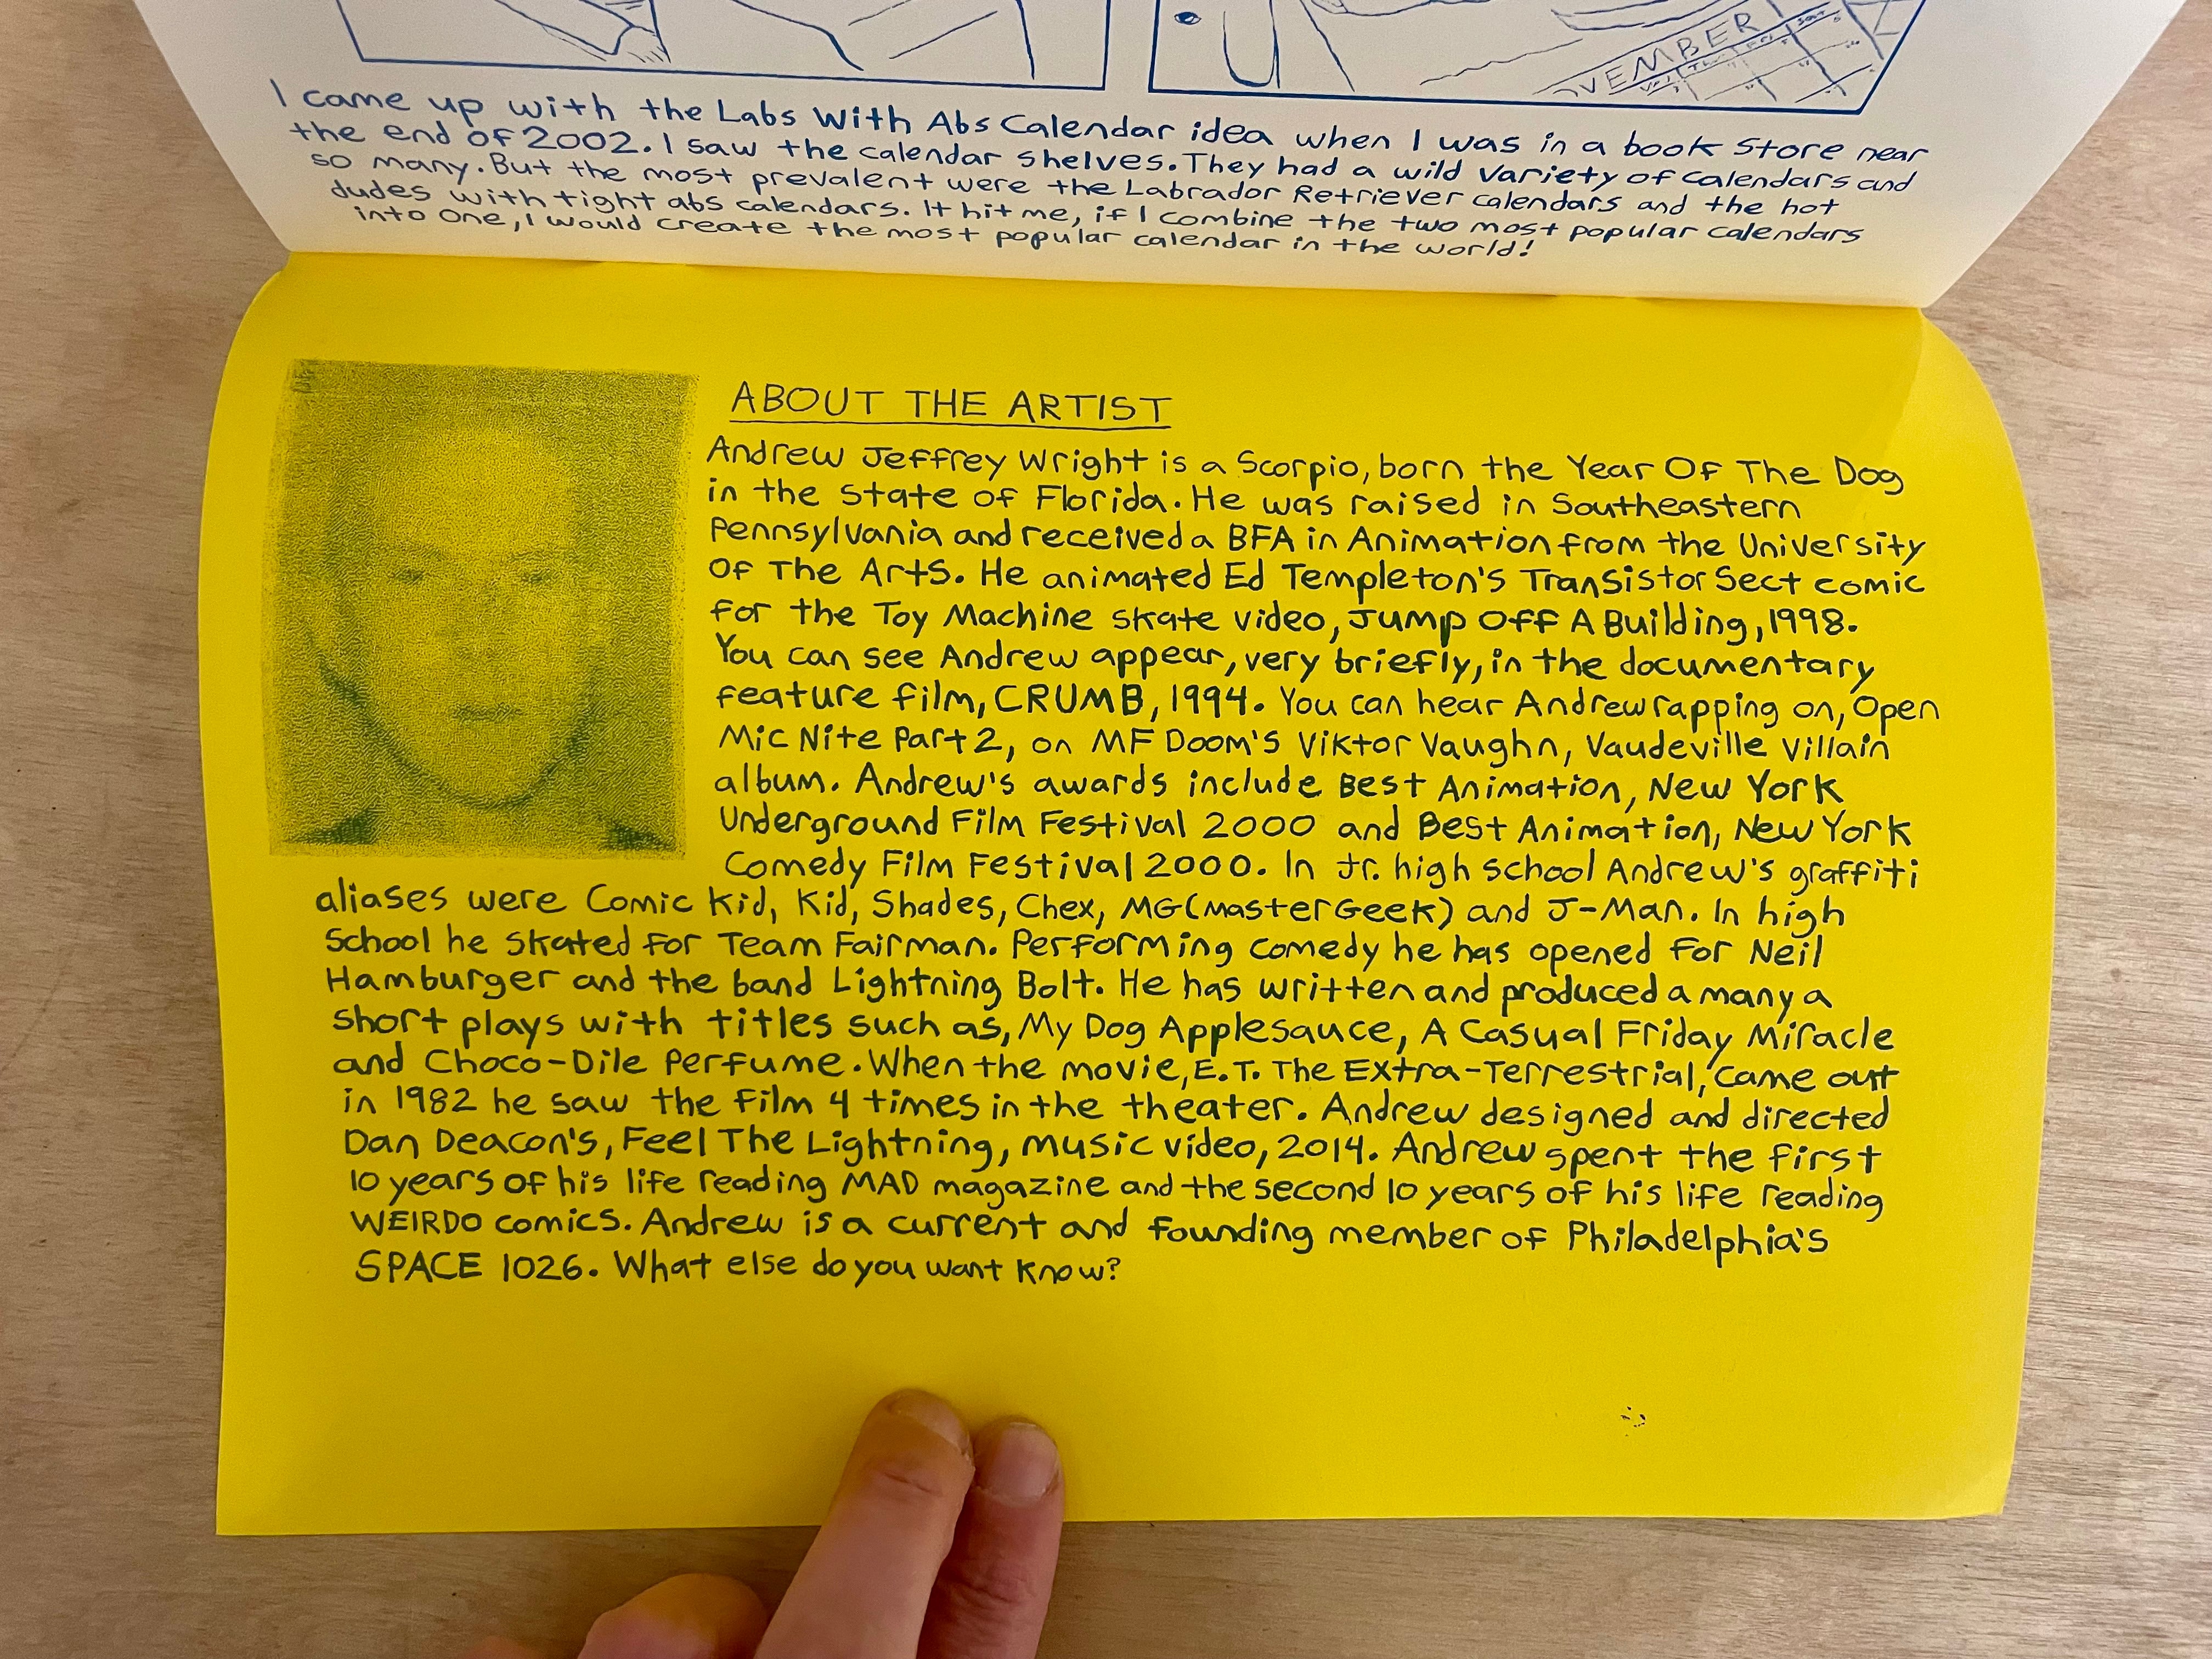 VEMBER
I came up with the Labs With Abs Calendar idea when I was in a book store near
the end of 2002. I saw the calendar shelves. They had a wild variety of calendars and
so many. But the most prevalent were the Labrador Retriever calendars and the hot
dudes with tight abs calendars. It hit me, if I combine the two most popular calendars
into one, I would create the most popular calendar in the world!
ABOUT THE ARTIST
Andrew Jeffrey Wright is a Scorpio, born the Year Of The Dog
in the state of Florida. He was raised in Southeastern
Pennsylvania and received a BFA in Animation from the University
Of The Arts. He animated Ed Templeton's Transistor Sect comic
for the Toy Machine skate video, Jump Off A Building, 1998.
You can see Andrew appear, very briefly, in the documentary
feature film, CRUMB, 1994. You can hear Andrew rapping on, Open
Mic Nite Part 2, on MF Doom's Viktor Vaughn, Vaudeville Villain
album. Andrew's awards include Best Animation, New York
Underground Film Festival 2000 and Best Animation, New York
Comedy Film Festival 2000. In Jr. high school Andrew's graffiti
aliases were Comic Kid, Kid, Shades, Chex, MG (Master Geek) and J-Man. In high
School he skated for Team Fairman. Performing comedy he has opened for Neil
Hamburger and the band Lightning Bolt. He has written and produced a many a
short plays with titles such as, My Dog Applesauce, A Casual Friday Miracle
and Choco-Dile Perfume. When the movie, E.T. The Extra-Terrestrial, came out
in 1982 he saw the film 4 times in the theater. Andrew designed and directed
Dan Deacon's, Feel The Lightning, music video, 2014. Andrew spent the first
10 years of his life reading MAD magazine and the second 10 years of his life reading
WEIRDO comics. Andrew is a current and founding member of Philadelphia's
SPACE 1026. What else do you want know?